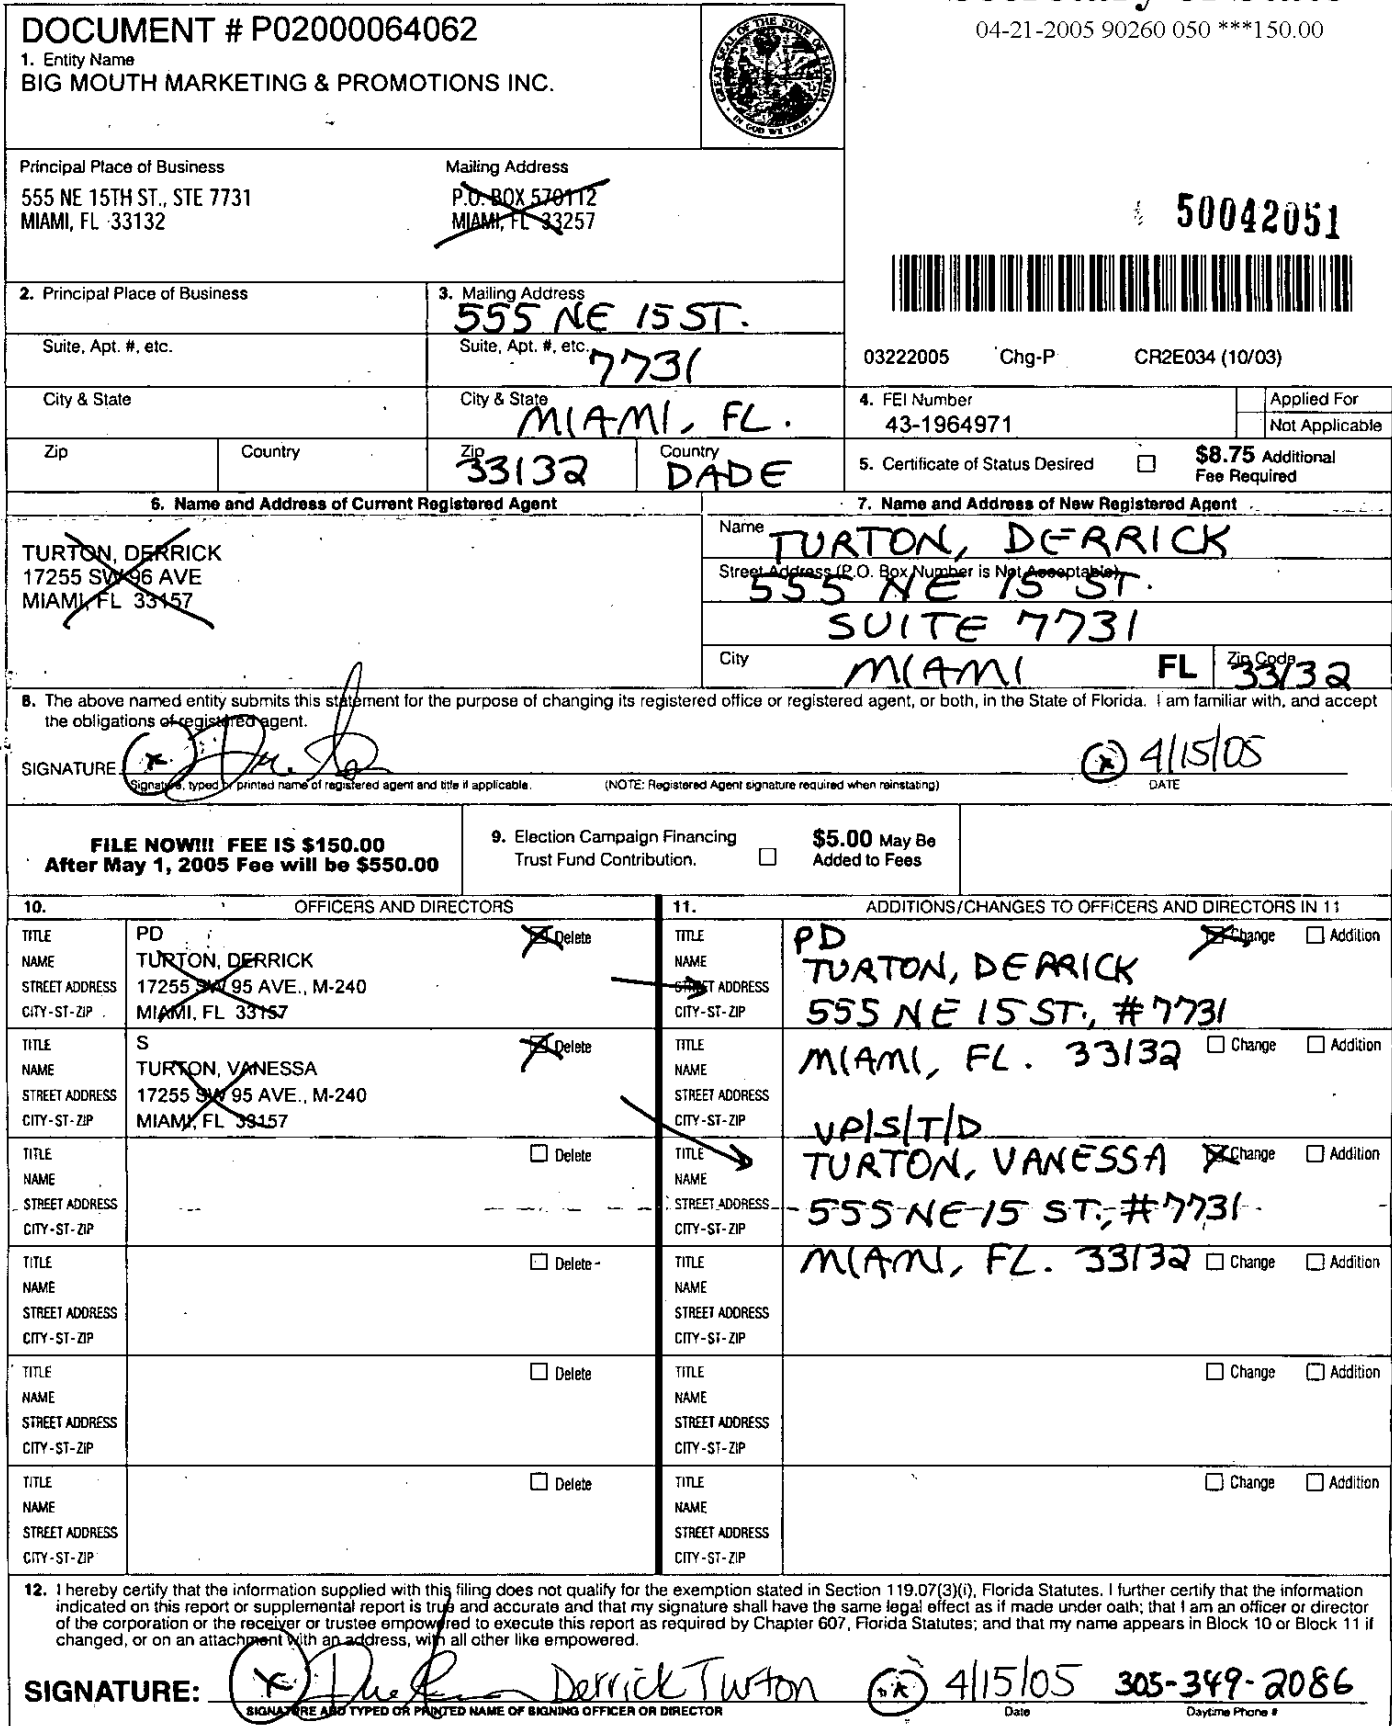 DOCUMENT # P02000064062
1. Entity Name
BIG MOUTH MARKETING & PROMOTIONS INC.
GREAT SEAL OF THE STATE OF FLORIDA
IN GOD WE TRUST
04-21-2005 90260 050 ***150.00
Principal Place of Business
555 NE 15TH ST., STE 7731
MIAMI, FL 33132
Mailing Address
P.O. BOX 570112
MIAMI, FL 33257
50042051
2. Principal Place of Business
3. Mailing Address
555 NE 15 ST.
Suite, Apt. #, etc.
Suite, Apt. #, etc.
7731
03222005 Chg-P CR2E034 (10/03)
City & State
City & State
MIAMI, FL.
4. FEI Number
43-1964971
Applied For
Not Applicable
Zip
Country
Zip
33132
Country
DADE
5. Certificate of Status Desired
$8.75 Additional
Fee Required
6. Name and Address of Current Registered Agent
TURTON, DERRICK
17255 SW 96 AVE
MIAMI, FL 33157
7. Name and Address of New Registered Agent
Name
TURTON, DERRICK
Street Address (P.O. Box Number is Not Acceptable)
555 NE 15 ST.
SUITE 7731
City
MIAMI
FL
Zip Code
33132
8. The above named entity submits this statement for the purpose of changing its registered office or registered agent, or both, in the State of Florida. I am familiar with, and accept
the obligations of registered agent.
SIGNATURE
x
x 4/15/05
Signature, typed or printed name of registered agent and title if applicable.
(NOTE: Registered Agent signature required when reinstating)
DATE
FILE NOW!!! FEE IS $150.00
After May 1, 2005 Fee will be $550.00
9. Election Campaign Financing
Trust Fund Contribution.
$5.00 May Be
Added to Fees
10. OFFICERS AND DIRECTORS
TITLE PD Delete
NAME TURTON, DERRICK
STREET ADDRESS 17255 SW 95 AVE., M-240
CITY-ST-ZIP MIAMI, FL 33157
TITLE S Delete
NAME TURTON, VANESSA
STREET ADDRESS 17255 SW 95 AVE., M-240
CITY-ST-ZIP MIAMI, FL 33157
TITLE Delete
NAME
STREET ADDRESS
CITY-ST-ZIP
TITLE Delete
NAME
STREET ADDRESS
CITY-ST-ZIP
TITLE Delete
NAME
STREET ADDRESS
CITY-ST-ZIP
TITLE Delete
NAME
STREET ADDRESS
CITY-ST-ZIP
11. ADDITIONS/CHANGES TO OFFICERS AND DIRECTORS IN 11
TITLE PD Change Addition
NAME TURTON, DERRICK
STREET ADDRESS
CITY-ST-ZIP 555 NE 15 ST., #7731
TITLE MIAMI, FL. 33132 Change Addition
NAME
STREET ADDRESS
CITY-ST-ZIP VP/S/T/D
TITLE TURTON, VANESSA Change Addition
NAME
STREET ADDRESS 555 NE 15 ST., #7731
CITY-ST-ZIP
TITLE MIAMI, FL. 33132 Change Addition
NAME
STREET ADDRESS
CITY-ST-ZIP
TITLE Change Addition
NAME
STREET ADDRESS
CITY-ST-ZIP
TITLE Change Addition
NAME
STREET ADDRESS
CITY-ST-ZIP
12. I hereby certify that the information supplied with this filing does not qualify for the exemption stated in Section 119.07(3)(i), Florida Statutes. I further certify that the information
indicated on this report or supplemental report is true and accurate and that my signature shall have the same legal effect as if made under oath; that I am an officer or director
of the corporation or the receiver or trustee empowered to execute this report as required by Chapter 607, Florida Statutes; and that my name appears in Block 10 or Block 11 if
changed, or on an attachment with an address, with all other like empowered.
SIGNATURE: x Derrick Turton x 4/15/05 305-349-2086
SIGNATURE AND TYPED OR PRINTED NAME OF SIGNING OFFICER OR DIRECTOR Date Daytime Phone #